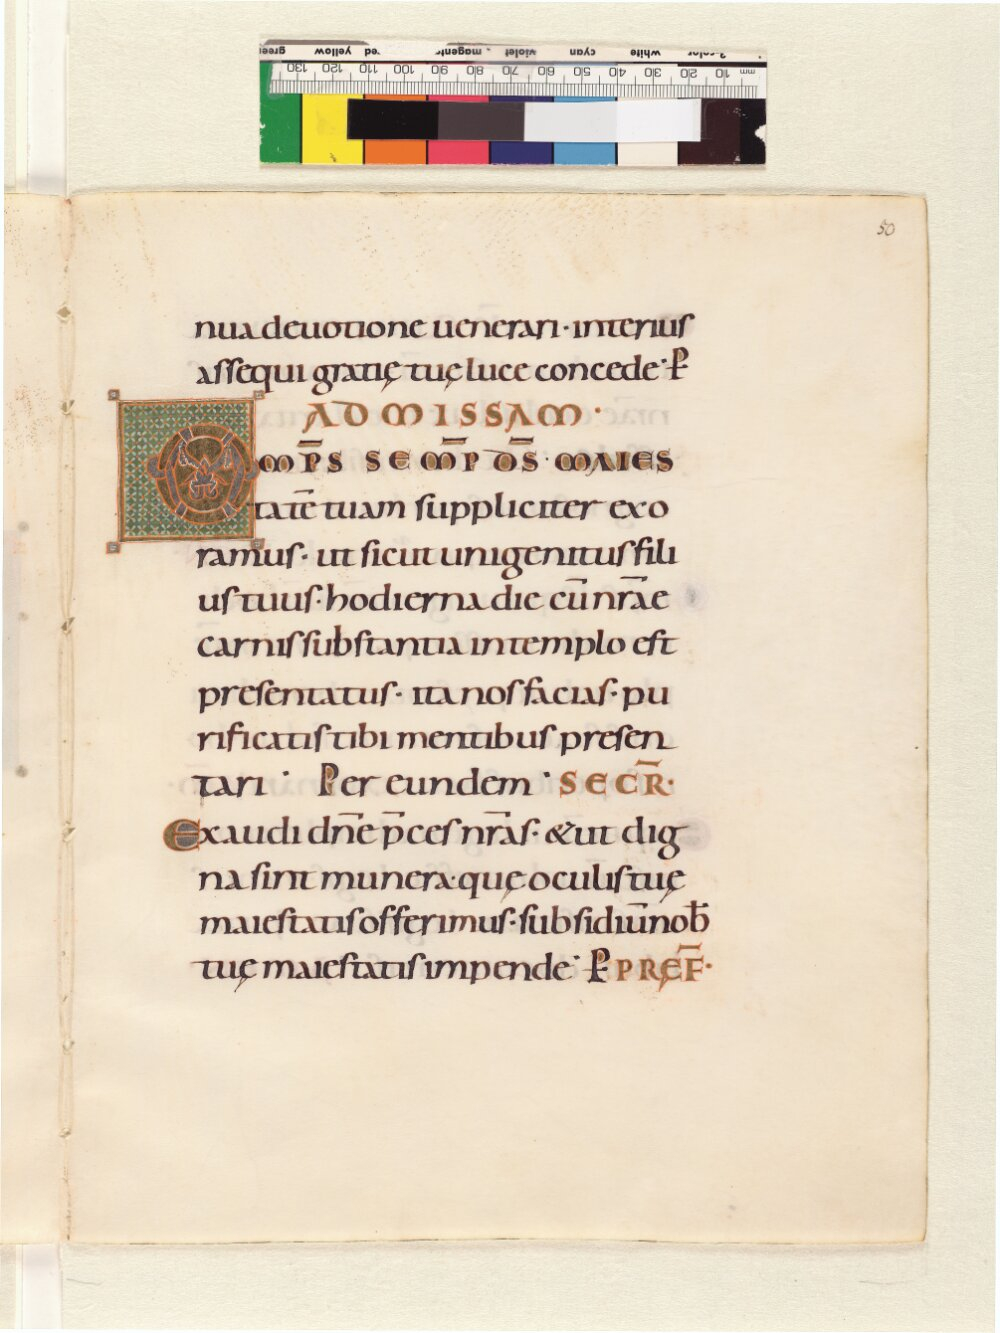 green yellow red magenta violet cyan white 3-color
130 120 110 100 90 80 70 60 50 40 30 20 10 mm
50
nua deuotione uenerari · interius
assequi gratię tuę luce concede · P̵
AD MISSAM ·
OMP̄S SEM̄P D̄S · MAIES
tatē tuam suppliciter exo
ramus · ut sicut unigenitus fili
us tuus · hodierna die cū nr̄ae
carnis substantia in templo est
presentatus · ita nos facias · pu
rificatis tibi mentibus presen
tari · Per eundem · SECR̄ ·
Exaudi dn̄e p̄ces nr̄as · & ut dig
na sint munera · quę oculis tuę
maiestatis offerimus · subsidiū nob̄
tuę maiestatis impende · P̵ PRĘF̄ ·